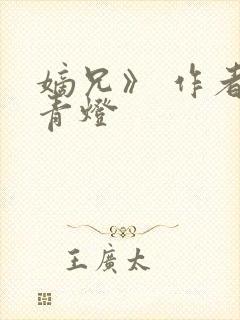 嫡兄》 作者
青燈
王廣太